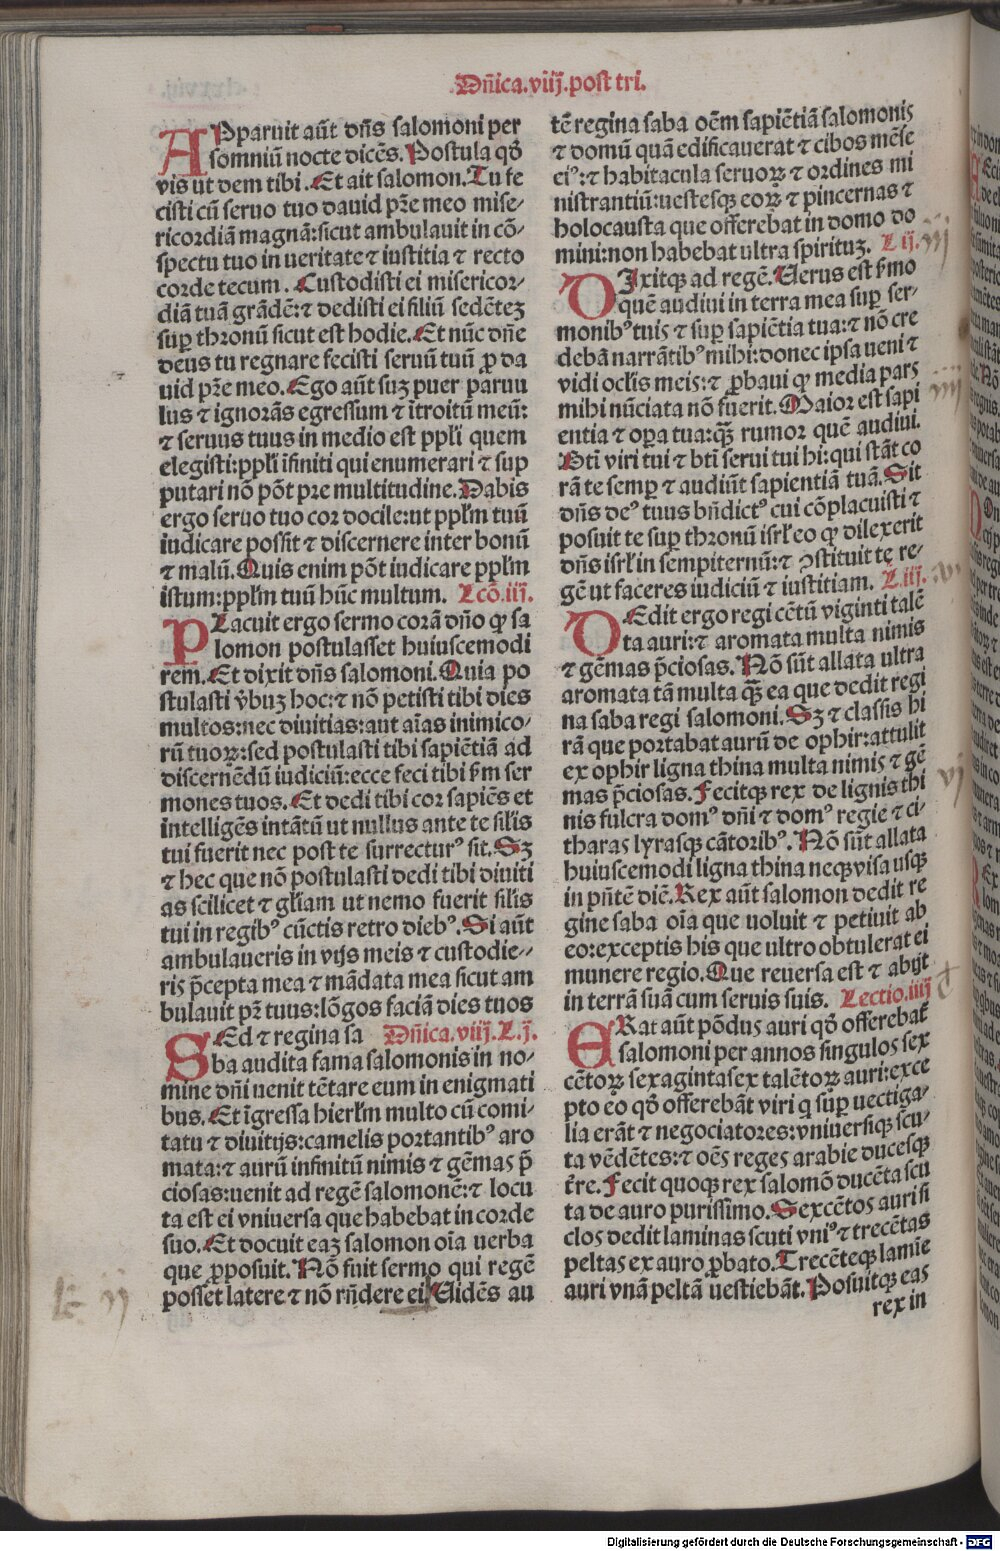 Dñica.viij.post tri.
APparuit aūt dñs salomoni per
somniū nocte dicēs. Postula qð
vis ut dem tibi. Et ait salomon. Tu fe
cisti cū seruo tuo dauid pr̄e meo mise-
ricordiā magnā: sicut ambulauit in cō-
spectu tuo in ueritate ⁊ iustitia ⁊ recto
corde tecum. Custodisti ei misericor-
diā tuā grādē: ⁊ dedisti ei filiū sedētez
sup̱ thronū sicut est hodie. Et nūc dñe
deus tu regnare fecisti seruū tuū ꝓ da
uid pr̄e meo. Ego aūt suz puer paruu
lus ⁊ ignorās egressum ⁊ ītroitū meū:
⁊ seruus tuus in medio est pp̄li quem
elegisti: pp̄li īfiniti qui enumerari ⁊ sup
putari nō pōt pre multitudine. Dabis
ergo seruo tuo cor docile: ut pp̄lm tuū
iudicare possit ⁊ discernere inter bonū
⁊ malū. Quis enim pōt iudicare pp̄lm
istum: pp̄lm tuū hūc multum. Lcō.iij.
PLacuit ergo sermo corā dño ꝙ sa
lomon postulasset huiuscemodi
rem. Et dixit dñs salomoni. Quia po
stulasti v̄buz hoc: ⁊ nō petisti tibi dies
multos: nec diuitias: aut aīas inimico-
rū tuoꝝ: sed postulasti tibi sapiētiā ad
discernēdū iudiciū: ecce feci tibi s̄m ser
mones tuos. Et dedi tibi cor sapiēs et
intelligēs intātū ut nullus ante te silis
tui fuerit nec post te surrecturꝰ sit. Sz
⁊ hec que nō postulasti dedi tibi diuiti
as scilicet ⁊ gl̄iam ut nemo fuerit silis
tui in regibꝰ cūctis retro diebꝰ. Si aūt
ambulaueris in vijs meis ⁊ custodie-
ris p̄cepta mea ⁊ mādata mea sicut am
bulauit pr̄ tuus: lōgos faciā dies tuos
SEd ⁊ regina sa Dñica.viij.L.j.
ba audita fama salomonis in no-
mine dñi uenit tētare eum in enigmati
bus. Et īgressa hierl̄m multo cū comi-
tatu ⁊ diuitijs: camelis portantibꝰ aro
mata: ⁊ aurū infinitū nimis ⁊ gēmas p̄
ciosas: uenit ad regē salomonē: ⁊ locu
ta est ei vniuersa que habebat in corde
suo. Et docuit eaz salomon oīa uerba
que ꝓposuit. Nō fuit sermo qui regē
posset latere ⁊ nō rñdere ei. Uidēs au
tē regina saba oēm sapiētiā salomonis
⁊ domū quā edificauerat ⁊ cibos mēse
eiꝰ: ⁊ habitacula seruoꝝ ⁊ ordines mi
nistrantiū: uestesqꝫ eoꝝ ⁊ pincernas ⁊
holocausta que offerebat in domo do
mini: non habebat ultra spirituz. L ij.
DIxitqꝫ ad regē. Uerus est s̄mo
quē audiui in terra mea sup̱ ser-
monibꝰ tuis ⁊ sup̱ sapiētia tua: ⁊ nō cre
debā narrātibꝰ mihi: donec ipsa ueni ⁊
vidi oclīs meis: ⁊ ꝓbaui ꝙ media pars
mihi nūciata nō fuerit. Maior est sapi
entia ⁊ oꝑa tua: qꝫ̄ rumor quē audiui.
Btī viri tui ⁊ btī serui tui hi: qui stāt co
rā te semꝑ ⁊ audiūt sapientiā tuā. Sit
dñs deꝰ tuus bñdictꝰ cui cōplacuisti ⁊
posuit te sup̱ thronū isrl̄ eo ꝙ dilexerit
dñs isrl̄ in sempiternū: ⁊ ꝯstituit te re-
gē ut faceres iudiciū ⁊ iustitiam. L.iij.
DEdit ergo regi cētū viginti talē
ta auri: ⁊ aromata multa nimis
⁊ gēmas p̄ciosas. Nō sūt allata ultra
aromata tā multa qꝫ̄ ea que dedit regi
na saba regi salomoni. Sz ⁊ classis hi
rā que portabat aurū de ophir: attulit
ex ophir ligna thina multa nimis ⁊ gē
mas p̄ciosas. Fecitqꝫ rex de lignis thi
nis fulcra domꝰ dñi ⁊ domꝰ regie ⁊ ci-
tharas lyrasqꝫ cātoribꝰ. Nō sūt allata
huiuscemodi ligna thina neqꝫ visa usqꝫ
in pñtē diē. Rex aūt salomon dedit re
gine saba oīa que uoluit ⁊ petiuit ab
eo: exceptis his que ultro obtulerat ei
munere regio. Que reuersa est ⁊ abijt
in terrā suā cum seruis suis. Lectio.iiij
ERat aūt pōdus auri qð offerebat̄
salomoni per annos singulos sex
cētoꝝ sexagintasex talētoꝝ auri: exce
pto eo qð offerebāt viri q sup̱ uectiga-
lia erāt ⁊ negociatores: vniuersiqꝫ scu-
ta vēdētes: ⁊ oēs reges arabie ducesqꝫ
tr̄e. Fecit quoqꝫ rex salomō ducēta scu
ta de auro purissimo. Sexcētos auri si
clos dedit laminas scuti vniꝰ ⁊ trecētas
peltas ex auro ꝓbato. Trecēteqꝫ lamīe
auri vnā peltā uestiebāt. Posuitqꝫ eas
rex in
iij
iiij
v
vj
Digitalisierung gefördert durch die Deutsche Forschungsgemeinschaft - DFG